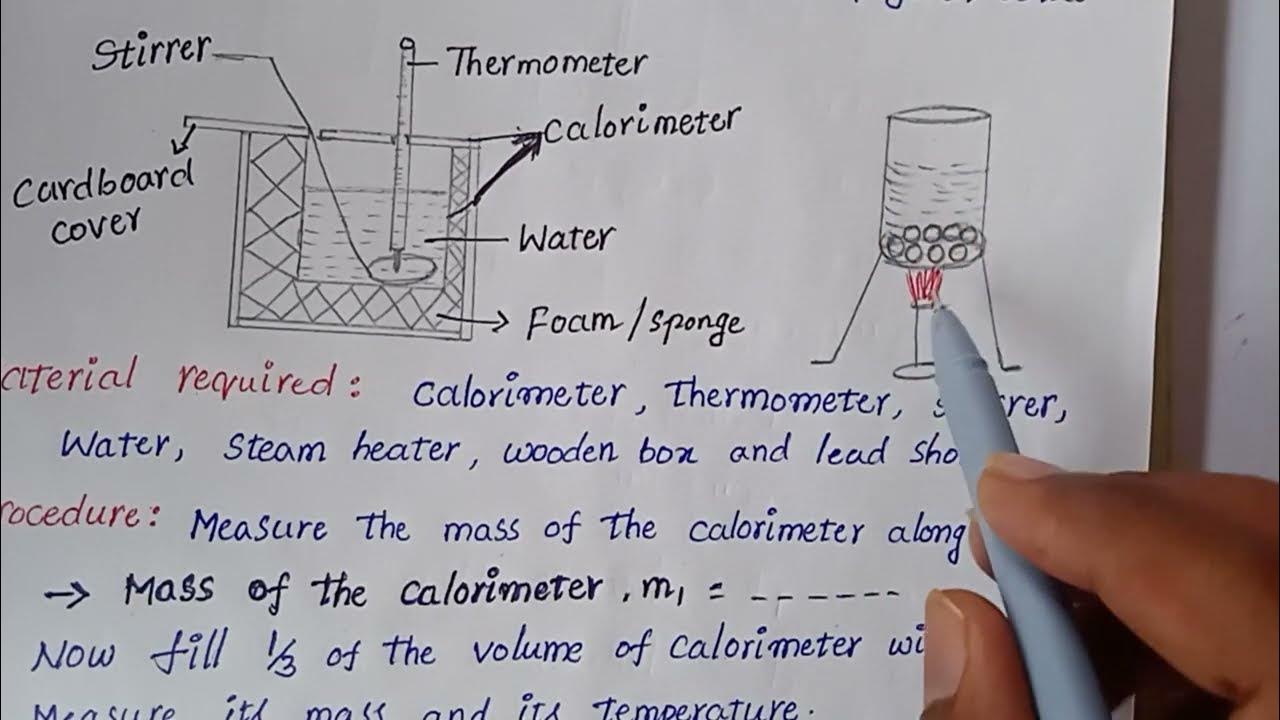 Stirrer
Thermometer
Calorimeter
Cardboard
cover
Water
Foam/sponge
aterial required: Calorimeter, Thermometer,
Water, Steam heater, wooden box and lead sho
rocedure: Measure the mass of the calorimeter along
→ Mass of the calorimeter, m₁ = ------
Now fill 1/3 of the volume of calorimeter wi
Measure its mass and its temperature.